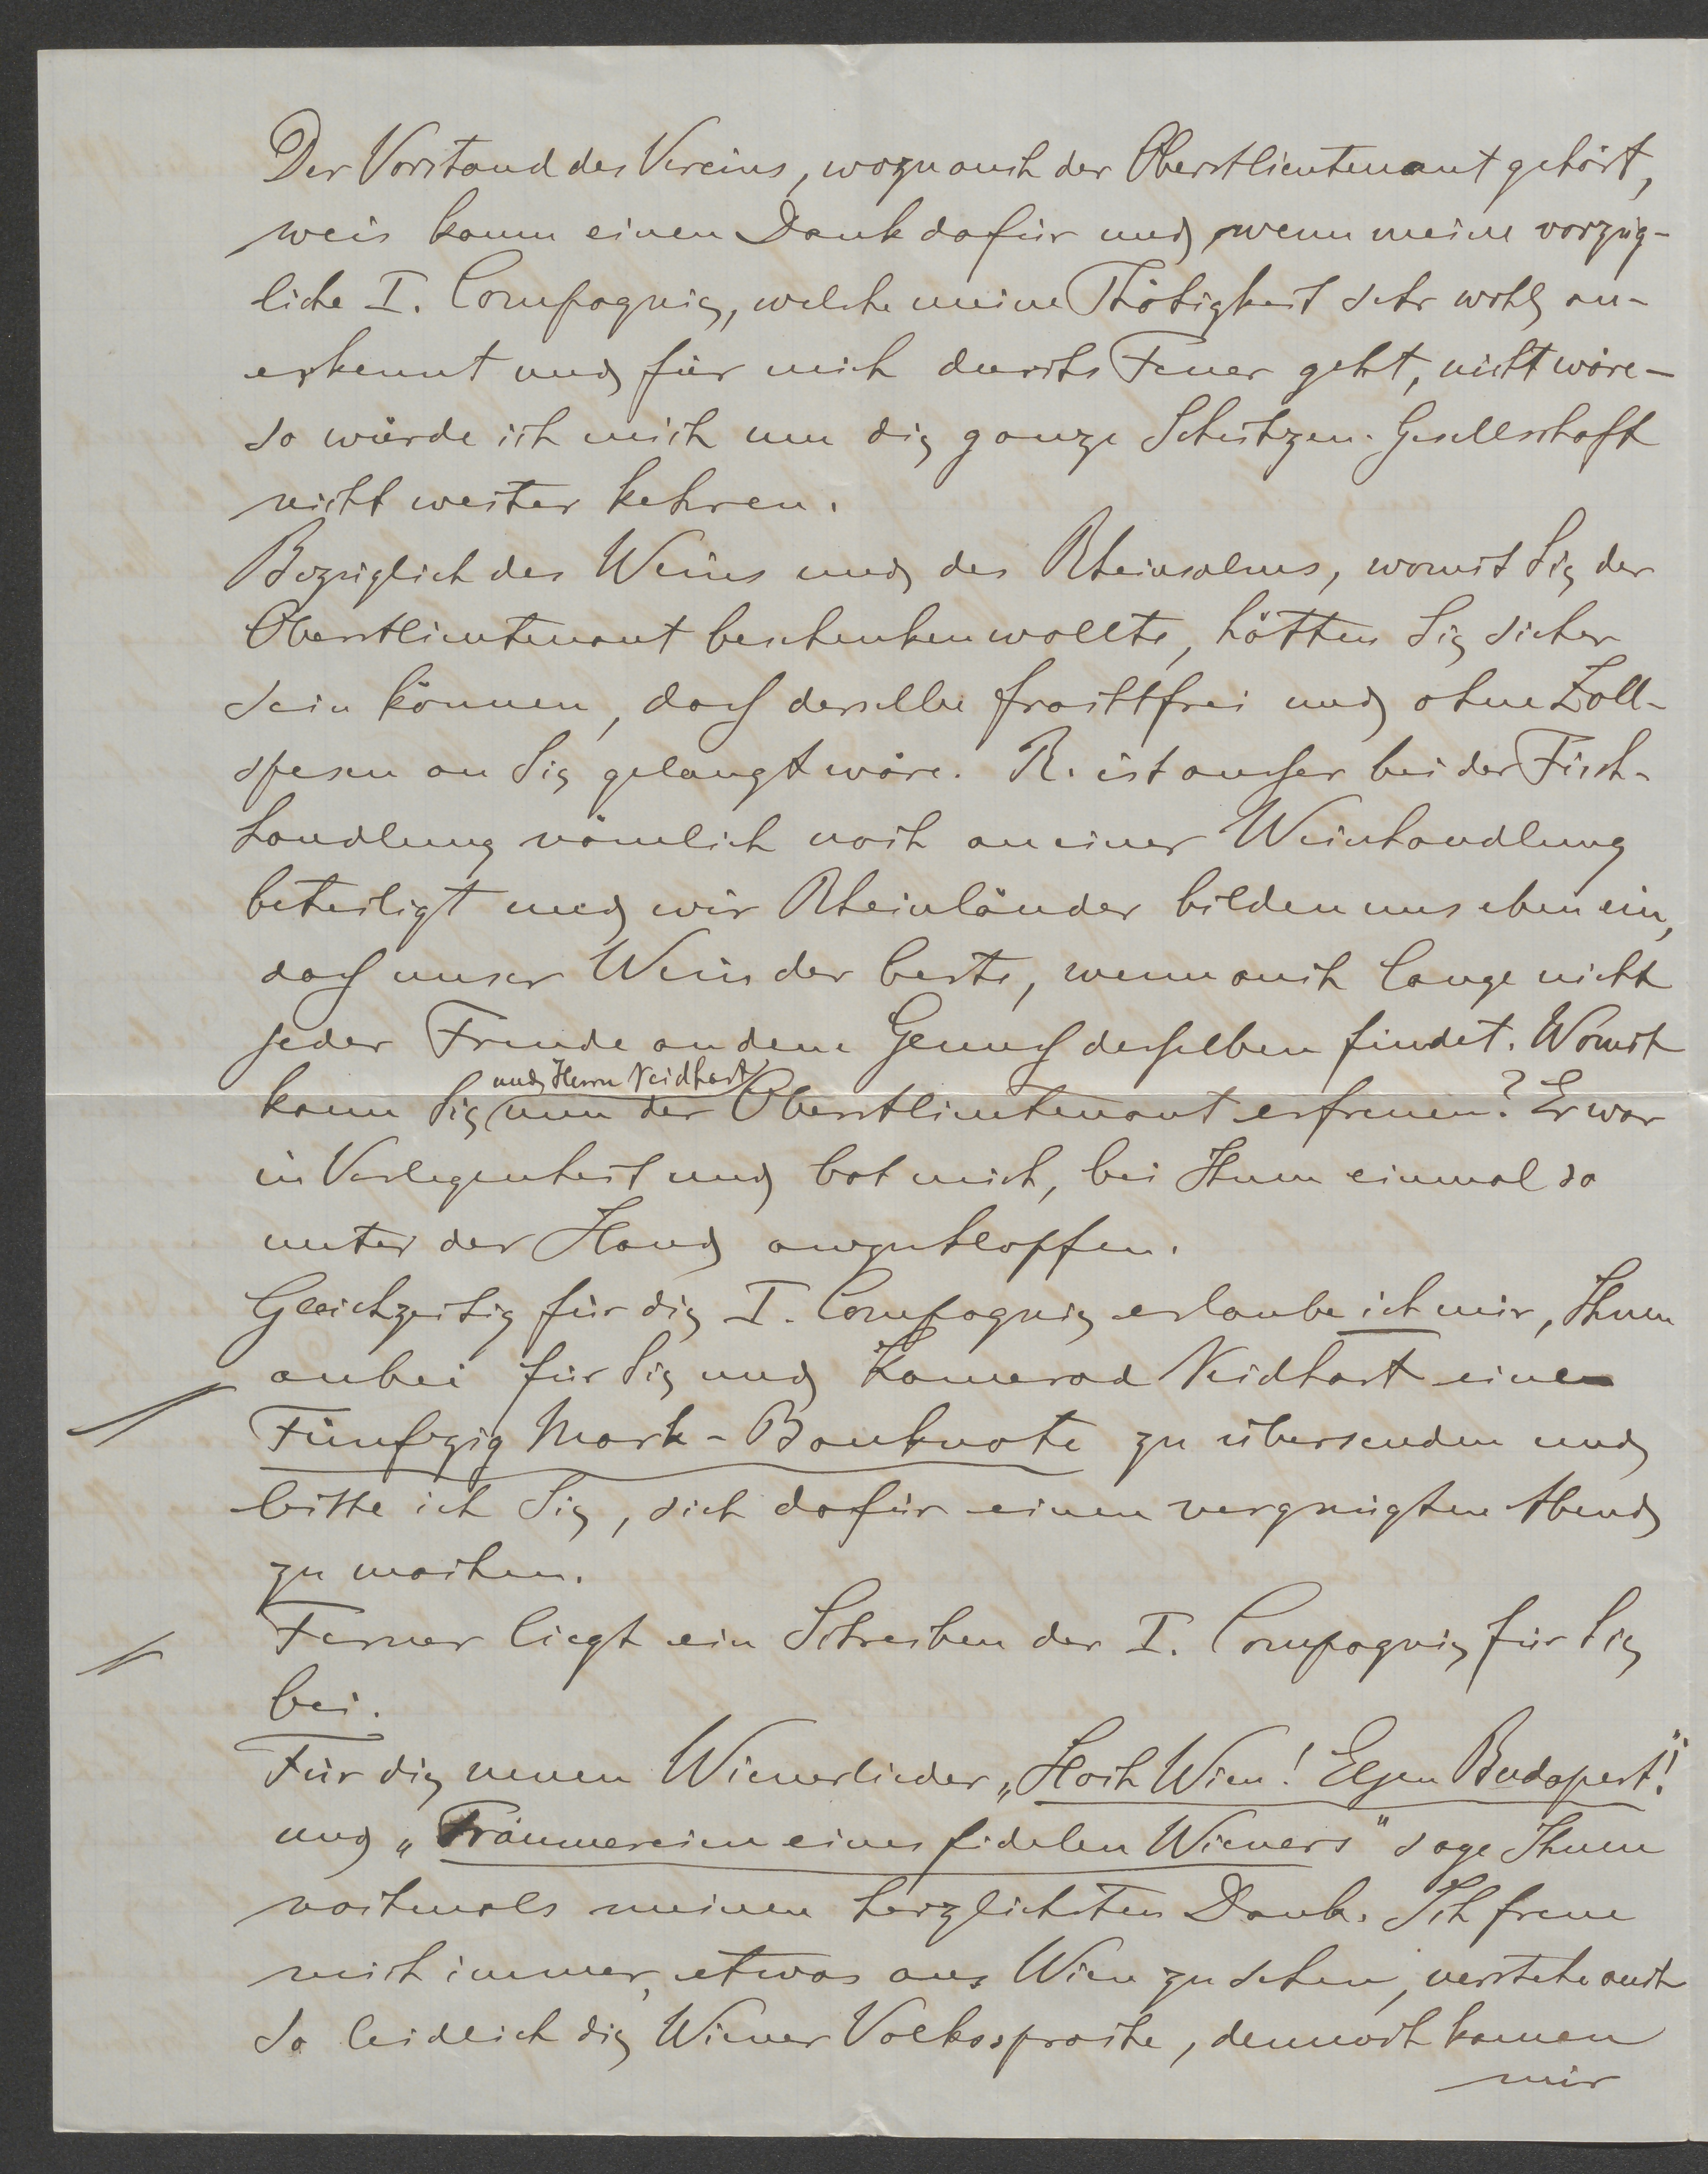 Der Vorstand des Vereins, wozu auch der Oberstlieutenant gehört,
weis kaum einen Dank dafür und wenn meine vorzüg-
liche I. Compagnie, welche meine Thätigkeit sehr wohl an-
erkennt und für mich durchs Feuer geht, nicht wäre –
so würde ich mich um die ganze Schützen-Gesellschaft
nicht weiter kehren.
Bezüglich des Weins und des Rheinsalms, womit Sie der
Oberstlieutenant beschenken wollte, hätten Sie sicher
sein können, daß derselbe frachtfrei und ohne Zoll-
spesen an Sie gelangt wäre. R. ist außer bei der Fisch-
handlung nämlich noch an einer Weinhandlung
beteiligt und wir Rheinländer bilden uns eben ein,
daß unser Wein der beste, wenn auch lange nicht
jeder Freude an dem Genuß desselben findet. Womit
und Herrn Neidhart
kann Sie nun der Oberstlieutenant erfreuen? Er war
in Verlegenheit und bat mich, bei Ihnen einmal so
unter der Hand anzuklopfen.
Gleichzeitig für die I. Compagnie erlaube ich mir, Ihnen
anbei für Sie und Kamerad Neidhart eine
Fünfzig Mark-Banknote zu übersenden und
bitte ich Sie, sich dafür einen vergnügten Abend
zu machen.
Ferner liegt ein Schreiben der I. Compagnie für Sie
bei.
Für die neuen Wienerlieder „Hoch Wien! Eljen Budapest!"
und „Träumereien eines fidelen Wieners" sage Ihnen
nochmals meinen herzlichsten Dank. Ich freue
mich immer, etwas aus Wien zu sehen, verstehe auch
so leidlich die Wiener Volkssprache, dennoch kamen
mir